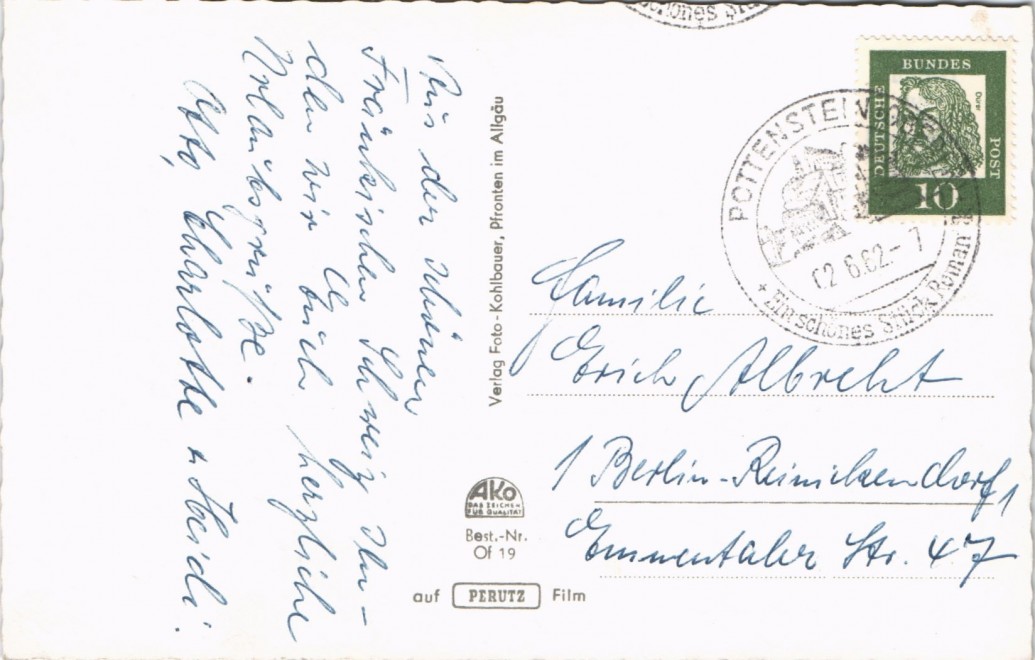 Aus der schönen
Fränkischen Schweiz sen-
den wir Euch herzliche
Urlaubsgrüße.
Otto, Charlotte u. Heidi.
Verlag Foto-Kohlbauer, Pfronten im Allgäu
AKO
DAS ZEICHEN
FÜR QUALITÄT
Best.-Nr.
Of 19
auf PERUTZ Film
schönes Stü
DEUTSCHE
BUNDES
POST
Dürer
10
POTTENSTEIN
02.6.62-7
+ Ein schönes Stück Roman
Familie
Erich Albrecht
1 Berlin-Reinickendorf,
Emmentaler Str. 47